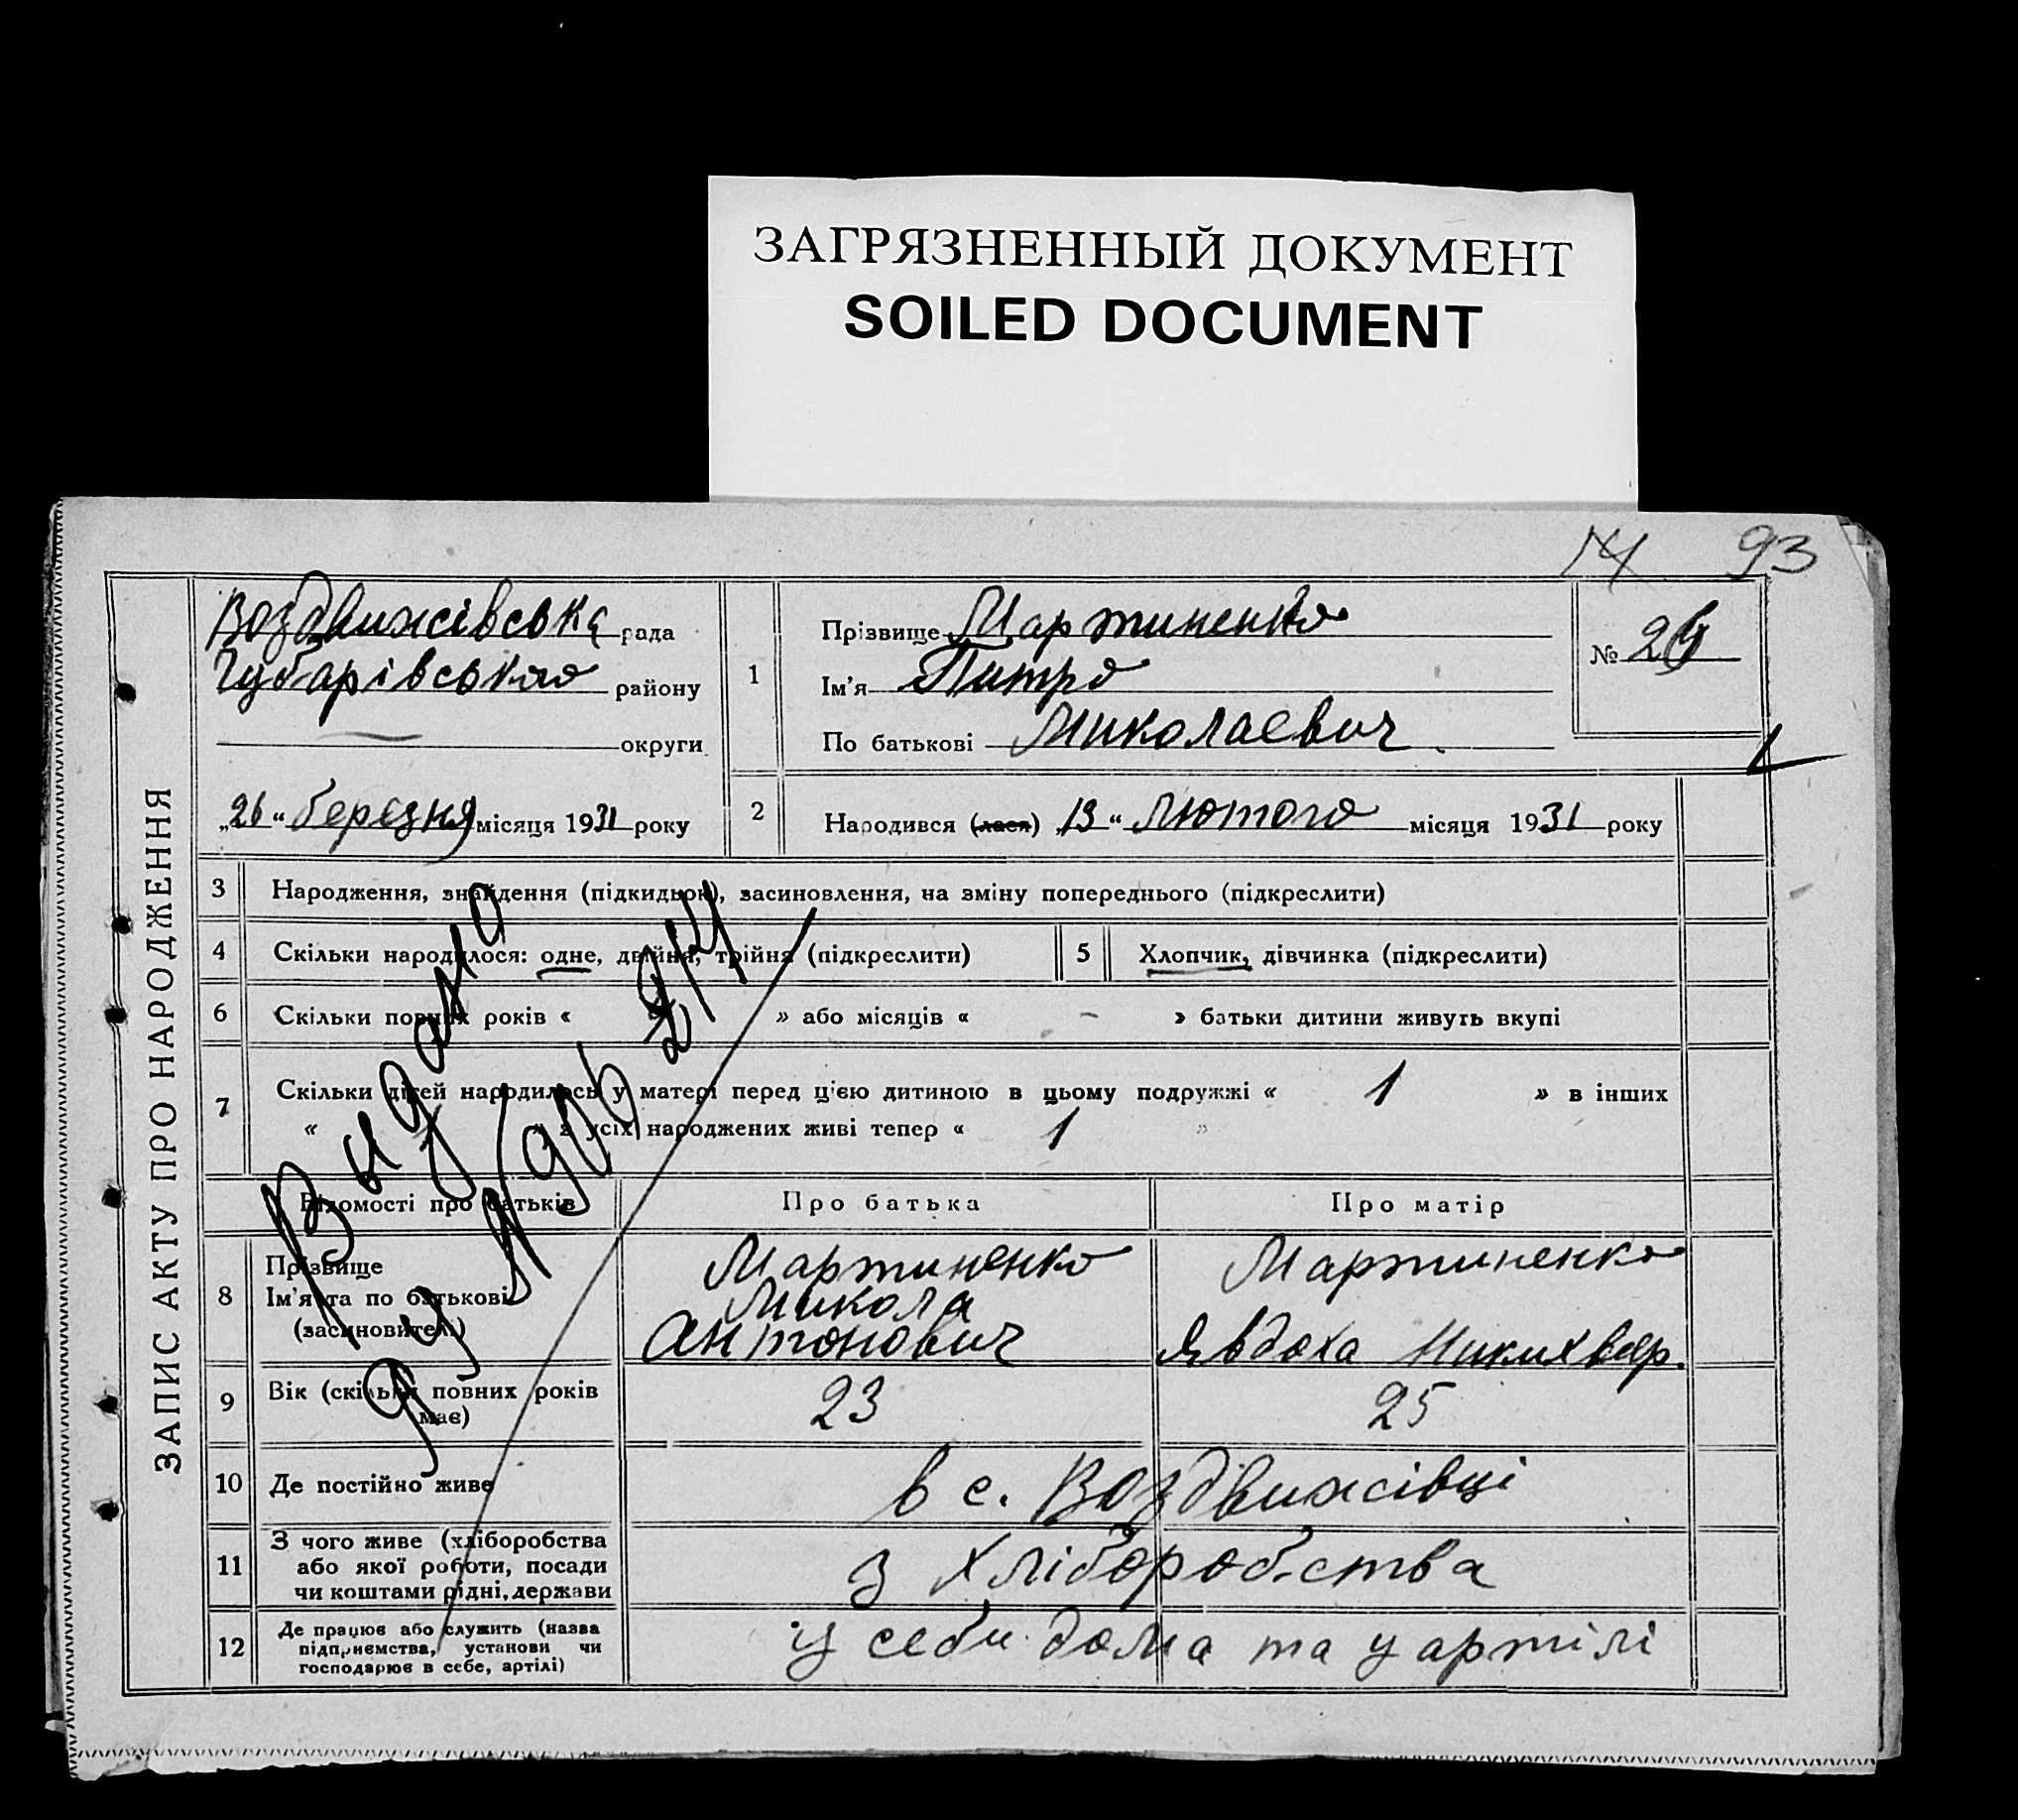 ЗАГРЯЗНЕННЫЙ ДОКУМЕНТ
SOILED DOCUMENT
93
ЗАПИС АКТУ ПРО НАРОДЖЕННЯ
Воздвижівська рада
Губарівського району
округи
„26“ березня місяця 1931 року
1
Прізвище Мартиненко
Ім'я Питро
По батькові Миколаевич
№
2
Народився (лася) „13“ Лютого місяця 1931 року
3 Народження, знайдення (підкидьок), засиновлення, на зміну попереднього (підкреслити)
4 Скільки народилося: одне, двійня, трійня (підкреслити)
5 Хлопчик, дівчинка (підкреслити)
6 Скільки повних років « » або місяців « - » батьки дитини живуть вкупі
7 Скільки дітей народилось у матері перед цією дитиною в цьому подружжі « 1 » в інших
« » з усіх народжених живі тепер « 1 »
Видано
Відомості про батьків
Про батька
Про матір
8 Прізвище
Ім'я та по батькові
(засиновителі)
Мартиненко
Микола
Антонович
Мартиненко
Явдоха Никихвор.
9 Вік (скільки повних років
має)
23
25
10 Де постійно живе
в с. Воздвижівці
11 З чого живе (хліборобства
або якої роботи, посади
чи коштами рідні, держави
з хлібороб-ства
12 Де працює або служить (назва
підприємства, установи чи
господарює в себе, артілі)
у себи дома та у артілі